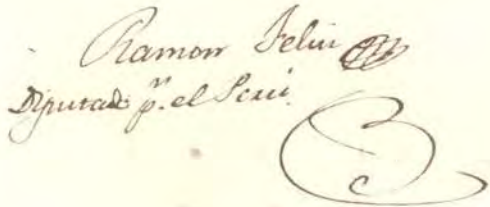 Ramon Feliu
Diputado p.r el Perú.